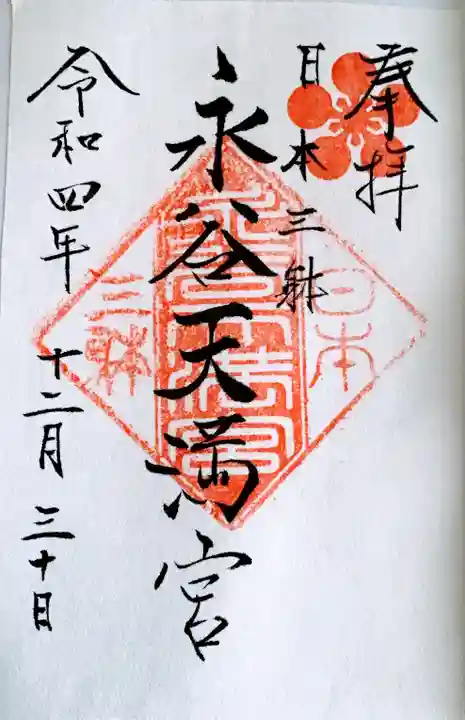 奉拝
日本三躰
永谷天満宮
令和四年十二月三十日
日本
三躰